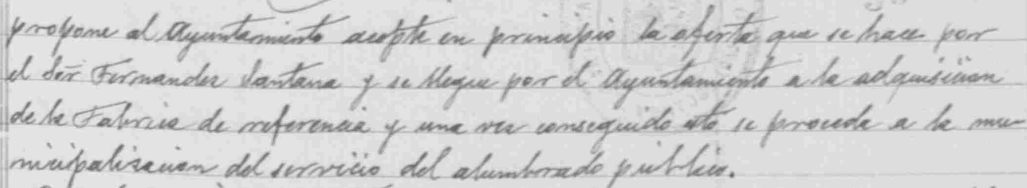 propone al Ayuntamiento acepte en principio la oferta que se hace por
el Señr Fernandez Santana y se llegue por el Ayuntamiento a la adquisicion
de la Fabrica de referencia y una vez conseguido esto se proceda a la mu-
nicipalizacion del servicio del alumbrado público.